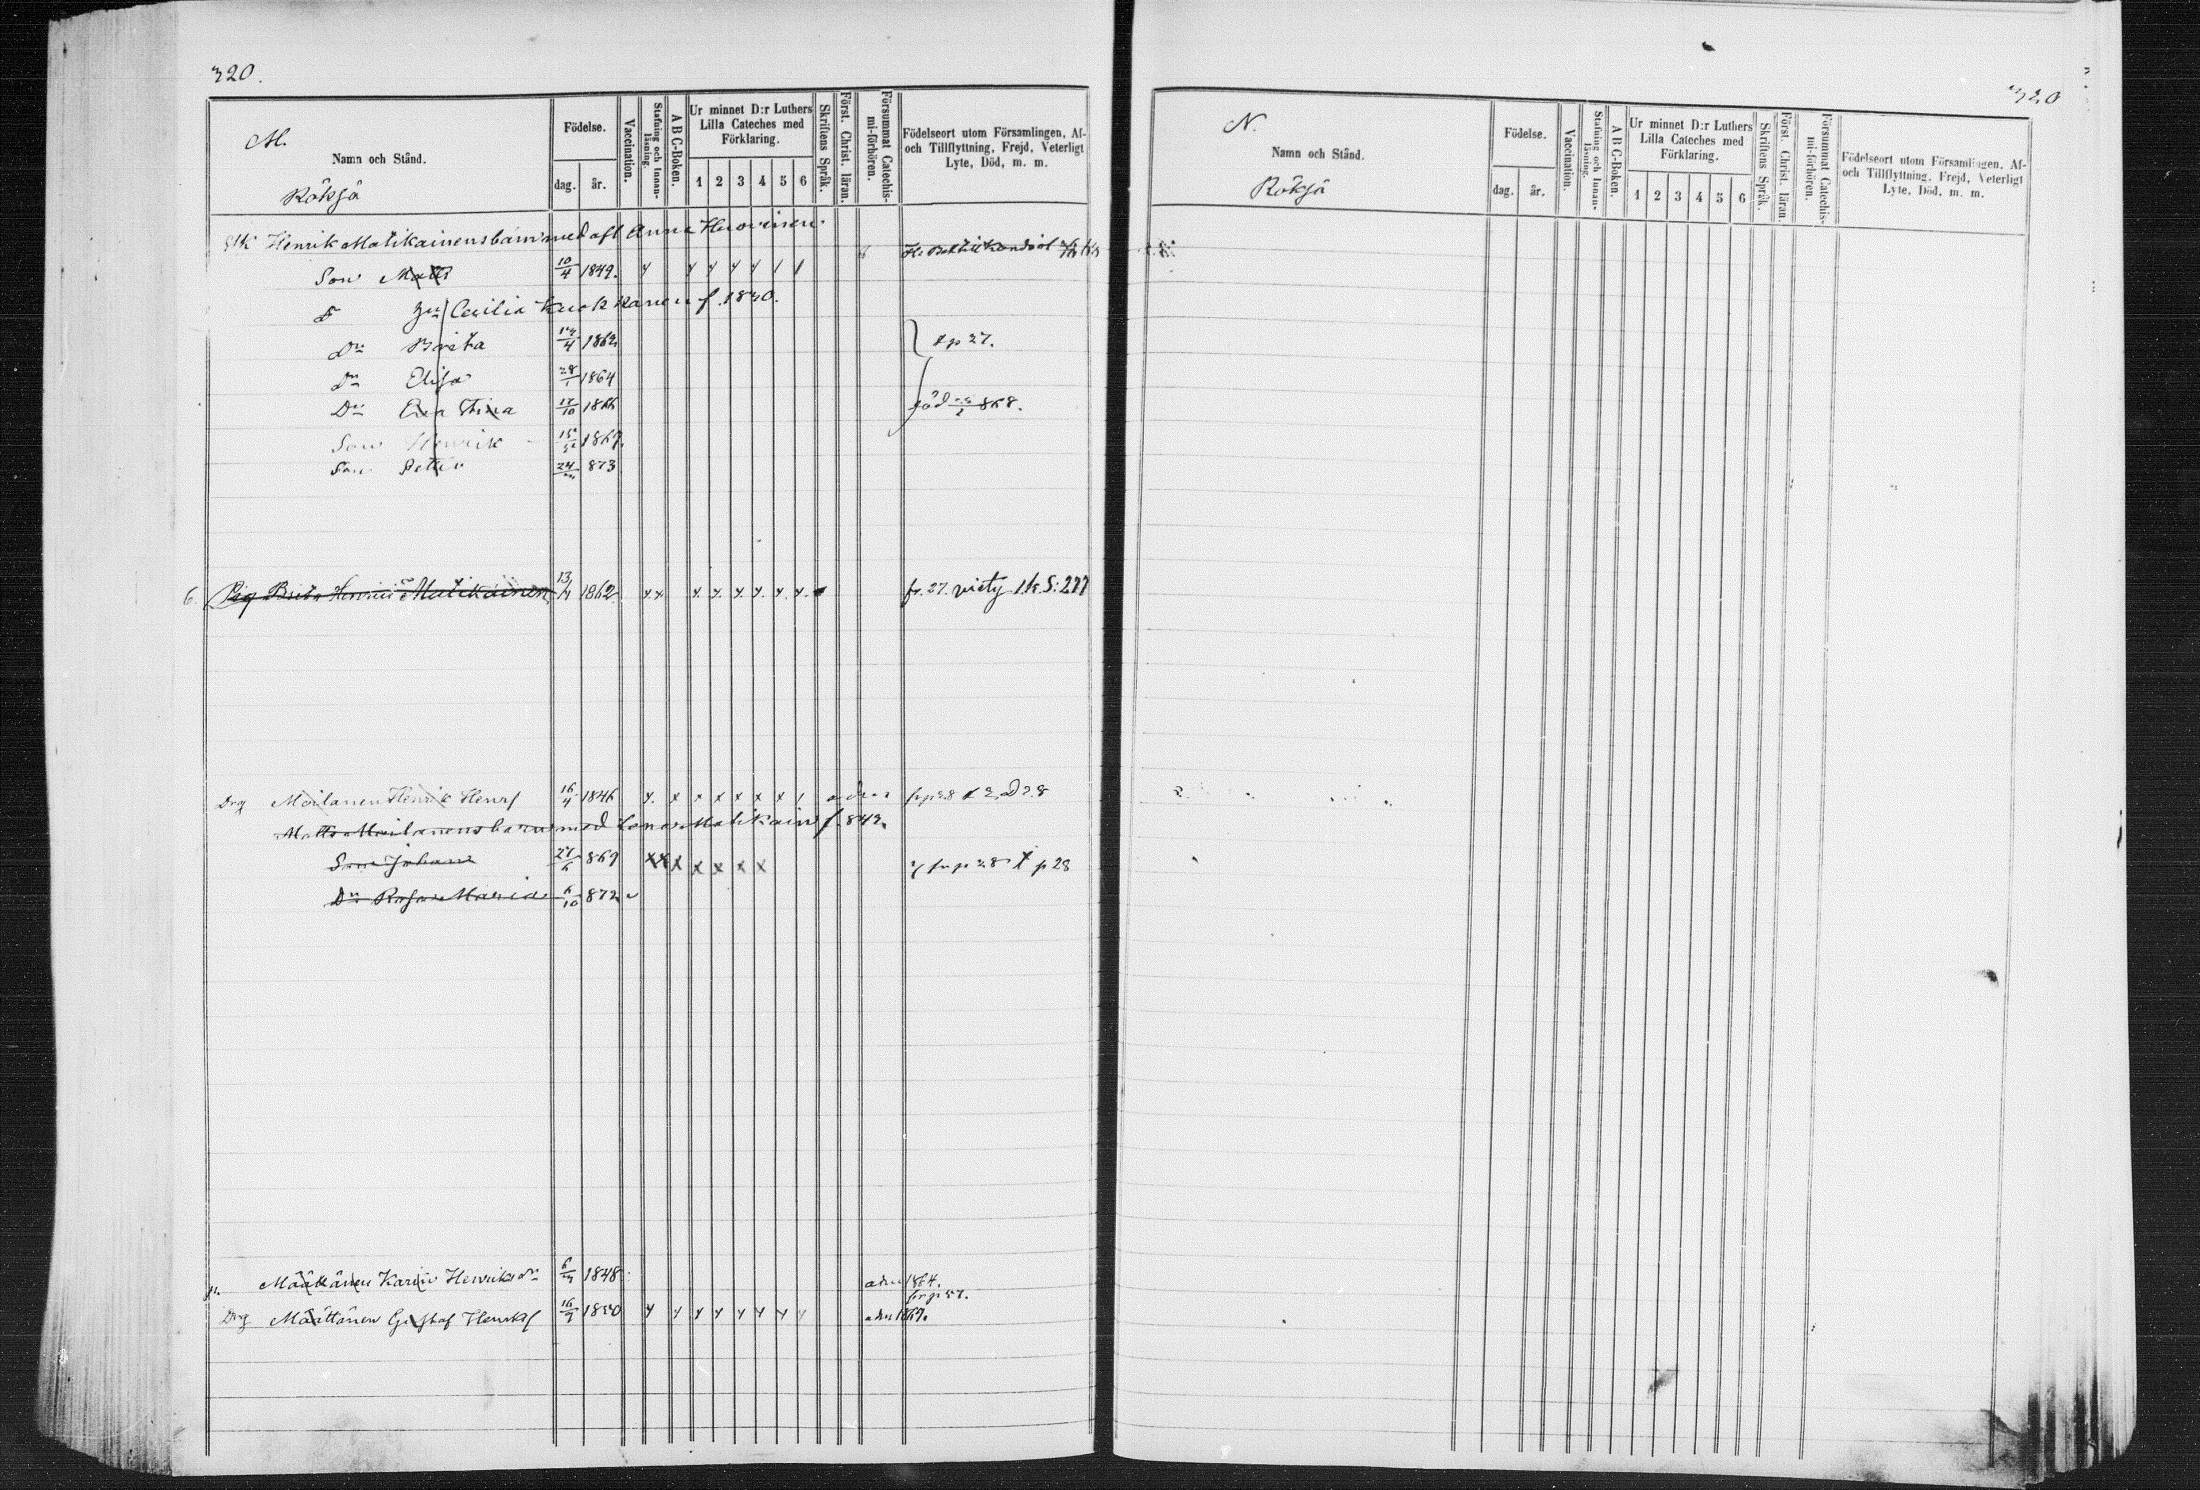 320.
M.
Namn och Stånd.
Röksjö
Födelse.
dag. år.
Vaccination.
Stafning och Innan-läsning.
A B C-Boken.
Ur minnet D:r Luthers
Lilla Cateches med
Förklaring.
1 2 3 4 5 6
Skriftens Språk.
Först. Christ. läran.
Försummat Catechis-mi-förhören.
Födelseort utom Församlingen, Af-
och Tillflyttning, Frejd, Veterligt
Lyte, Död, m. m.
Henrik Matikainens barn med afl Anna Huovinen
Son Matts 10/4 1849.
Cecilia Kuokkanen f. 1830.
Dr Brita 4 1862
Dr Elisa 28/1 1864
Dr Eva Stina 10 1866
död 868.
Son Henrik 1869.
Son Petter 24 873
6. Pig Brita Henrici Matikainen 13/4 1862 fr. 27. 1/k S: 277
Drg Moilanen Henrik Henrs 16/4 1846
Matts Moilanens barn med Lena Matikain f. 842
Son Johan 27/6 869 fr p 28 p 28
Dr Rosa Maria 6/10 872
Määttänen Karin Henriks dr 1848 adm 1864.
fr p 57.
Drg Määttänen Gustaf Henrks 16 1850 adm 1869.
320
N.
Namn och Stånd.
Röksjö
Födelse.
dag. år.
Vaccination.
Stafning och Innan-läsning.
A B C-Boken.
Ur minnet D:r Luthers
Lilla Cateches med
Förklaring.
1 2 3 4 5 6
Skriftens Språk.
Först. Christ. läran.
Försummat Catechis-mi-förhören.
Födelseort utom Församlingen, Af-
och Tillflyttning, Frejd, Veterligt
Lyte, Död, m. m.